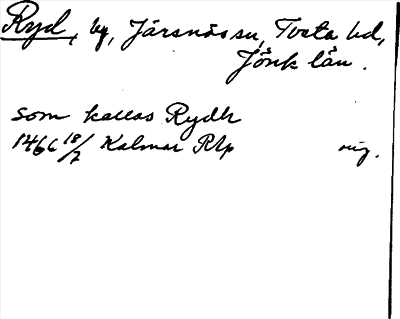 Ryd, by, Järsnäs sn, Tveta hd,
Jönk län.
som kallas Rydh
1466 18/7 Kalmar Rlp orig.